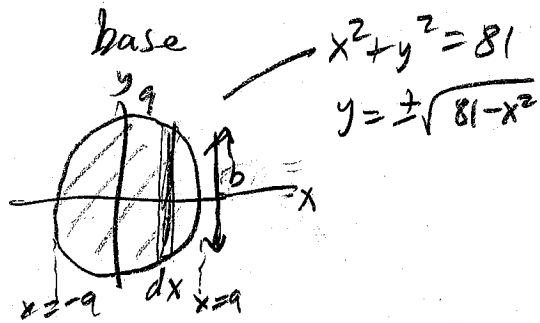 base
x² + y² = 81
y = ±√(81-x²)
y
9
b
x
x=-9
dx
x=9